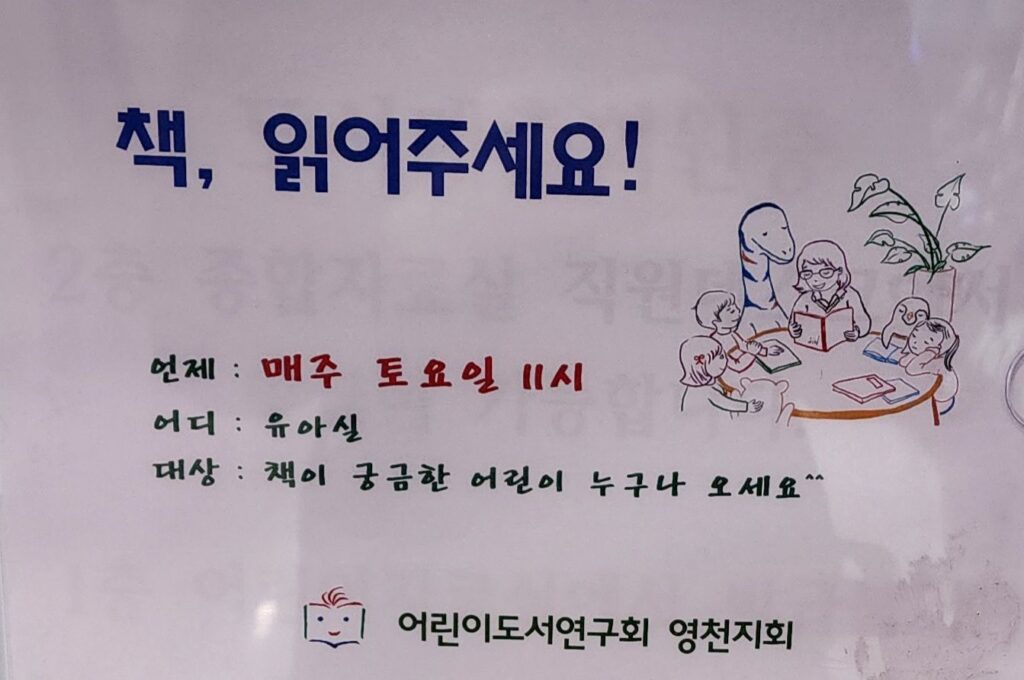 책, 읽어주세요!
언제 : 매주 토요일 11시
어디 : 유아실
대상 : 책이 궁금한 어린이 누구나 오세요^^
어린이도서연구회 영천지회